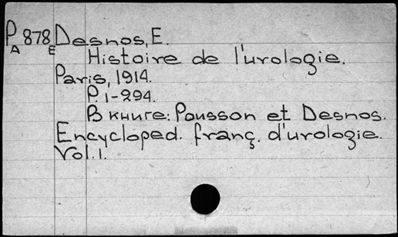 P 878 Desnos, E.
A E
Histoire de l'urologie.
Paris, 1914.
P. 1-294.
В книге: Pousson et Desnos.
Encycloped. franç. d'urologie.
Vol. 1.